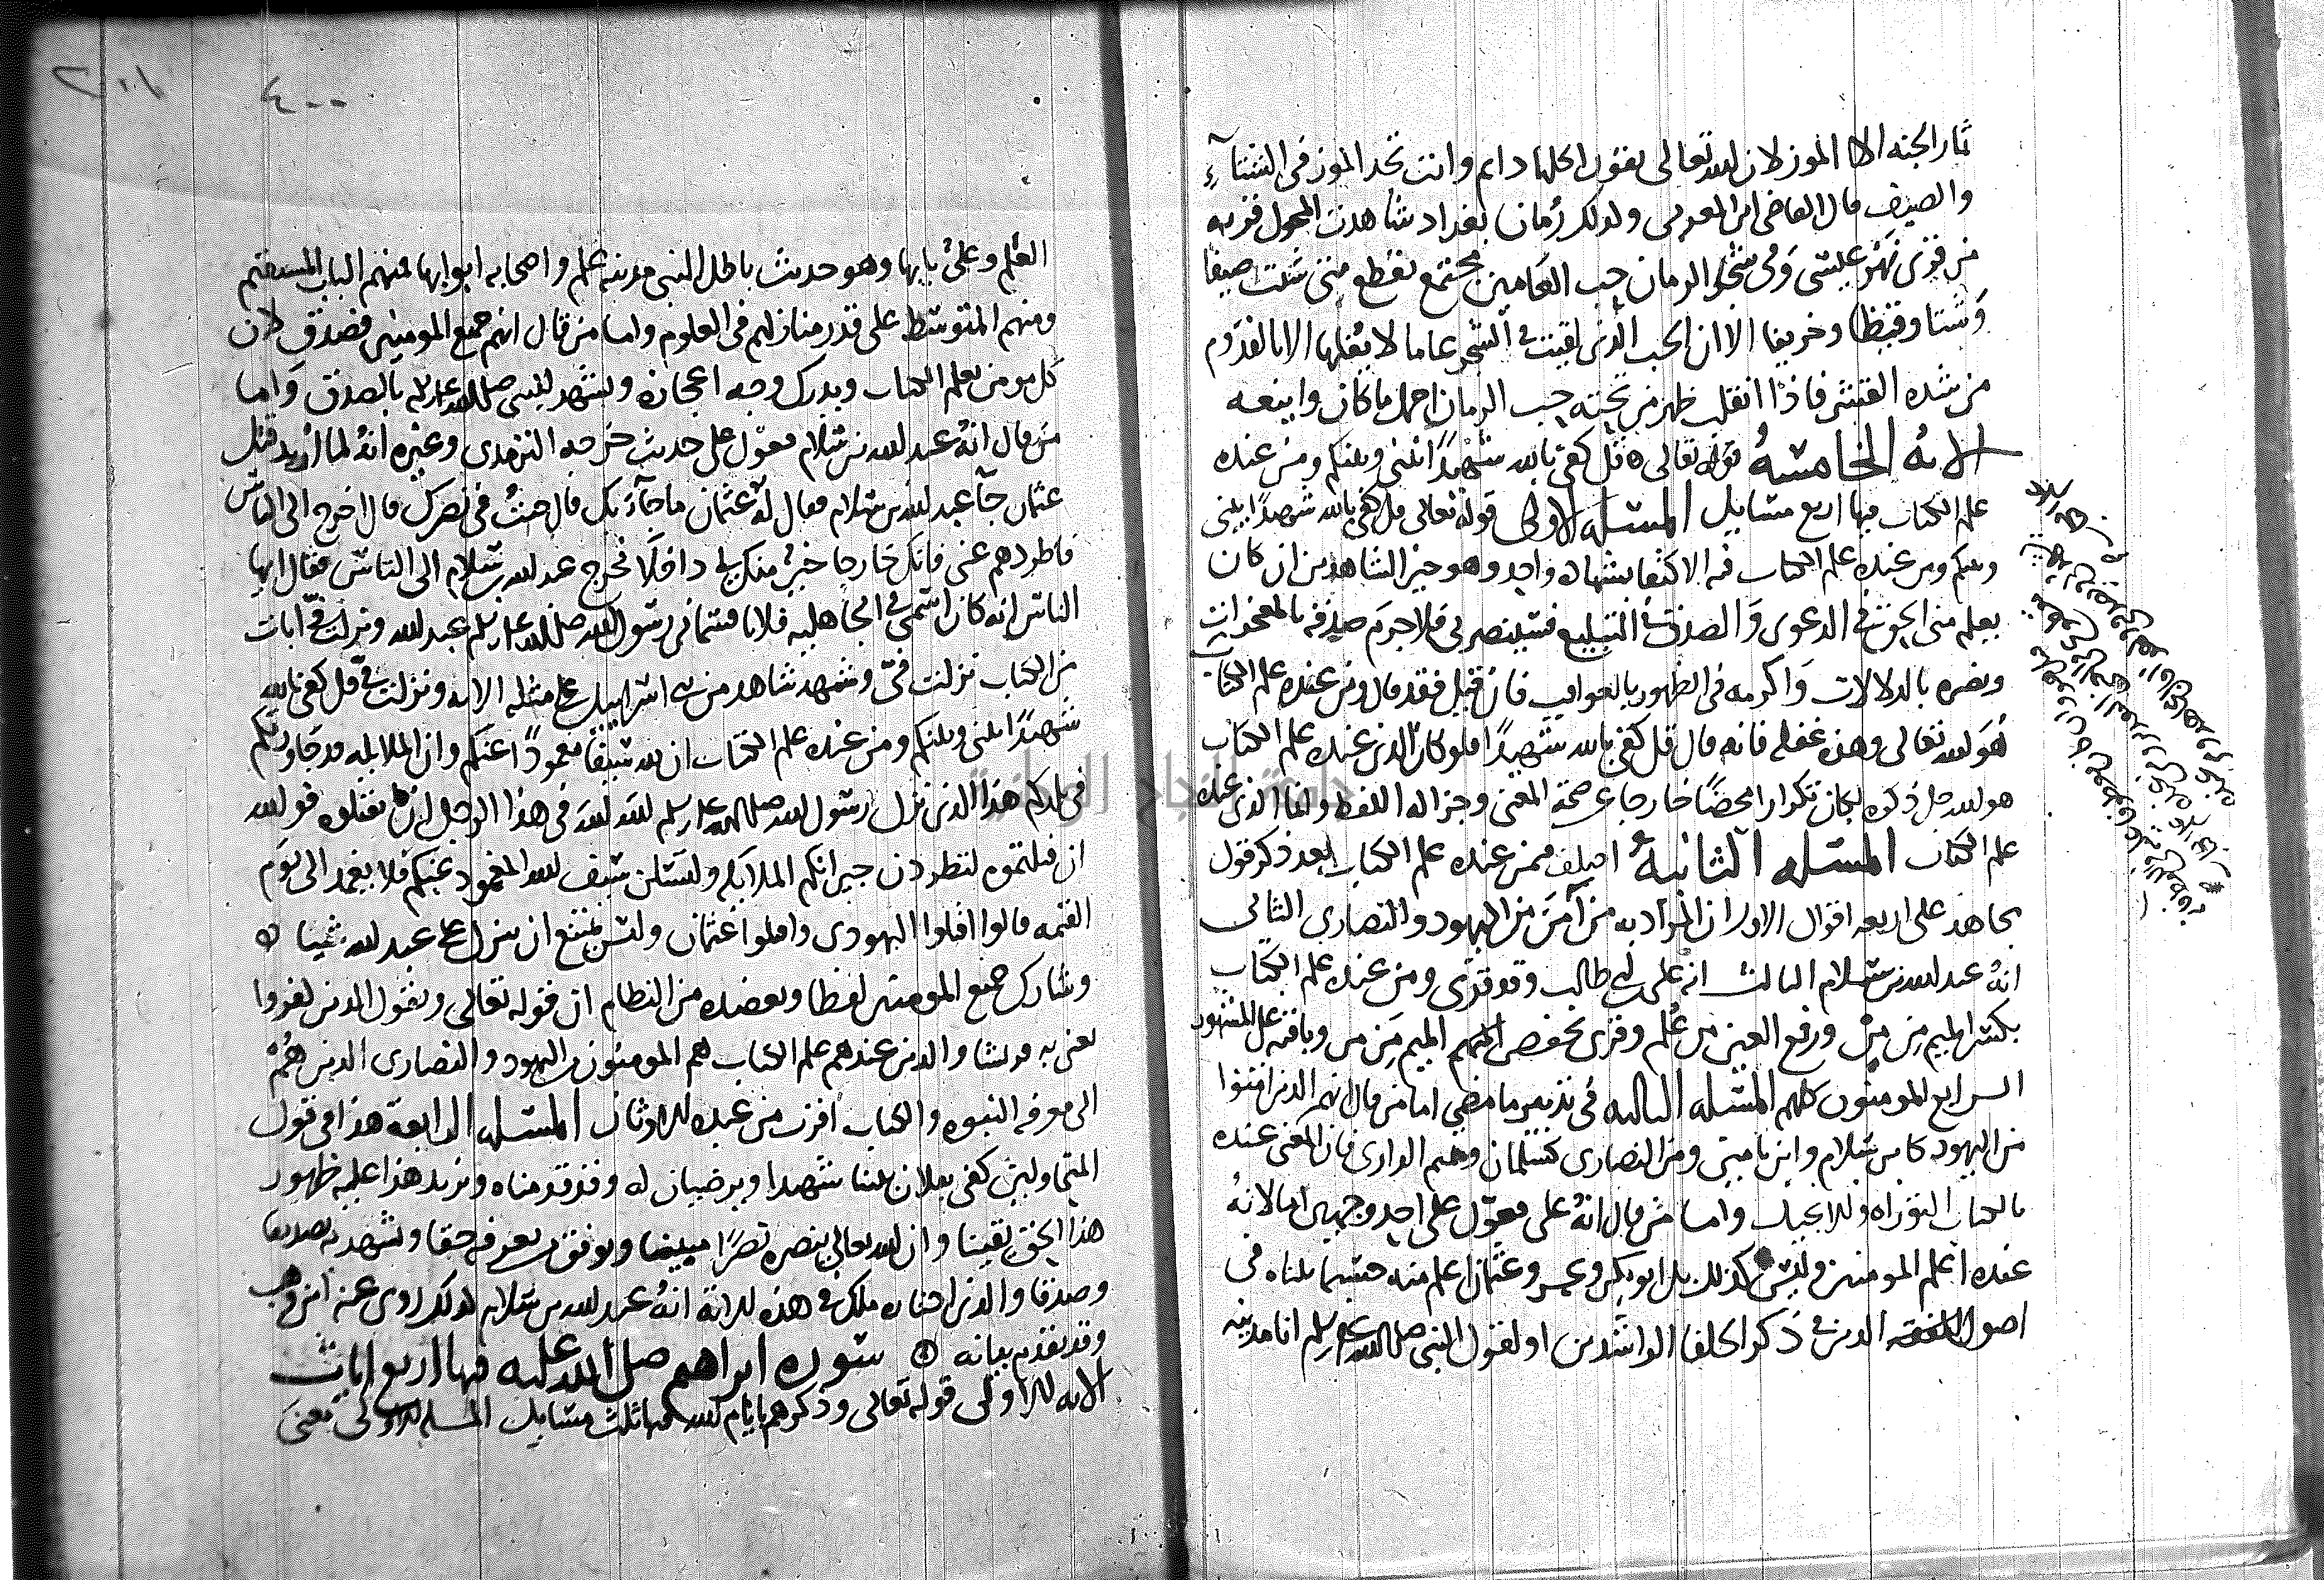 ثمار الجنه الا الموز لان الله تعالى يقول اكلها دايم وانت تجد الموز فى الشتآء
والصيف قال القاضى ابن العربى وكذلك رمان بغداد شاهدت المحول قريه
من قرى نهر عيسى وفى شجر الرمان حب العامين مجتمع يقطع متى شئت صيفا
وشتا وقيظا وخريفا الا ان الحب الذى لقيت فى الشجر عاما لا يفلها الا بالقدوم
من شده القشر فاذا انفلق ظهر من تحته حب الرمان اجمل ما كان واينعه
الايه الخامسة قوله تعالى قل كفى بالله شهيدا بينى وبينكم ومن عنده
علم الكتاب فيها اربع مسايل المسئله الاولى قوله تعالى قل كفى بالله شهيدا بينى
وبينكم ومن عنده علم الكتاب فيه الاكتفا بشهاده واحد وهو خير الشاهدين ان كان
يعلم منى الحق فى الدعوى والصدق فى التبليغ فسينصرنى فلا جرم صدقه بالمعجزات
ونصره بالدلالات واكرمه فى الظهور بالعواقب فان قيل فقد قال ومن عنده علم الكتاب
هو الله تعالى وهذه غفله فانه قال قل كفى بالله شهيدا فلو كان الذى عنده علم الكتاب
هو الله جل ذكره لكان تكرارا محضا خارجا عن صحة المعنى وجزاله اللفظ وانما الذى عنده
علم الكتاب المسئله الثانية اختلف فيمن عنده علم الكتاب بعد ذكر قول
مجاهد على اربعه اقوال الاول ان المراد به من آمن من اليهود والنصارى الثانى
انه عبد الله بن سلام الثالث انه على بن ابى طالب وقد قرى ومن عنده علم الكتاب
بكسر الميم من من ورفع العين من علم وقرى بخفض الميم من من وباقيه على المشهور
الرابع المومنون كلهم المسئله الثالثه فى تذييل ما مضى اما من قال انهم الذين امنوا
من اليهود كابن سلام وابن يامين ومن النصارى كسلمان وتميم الدارى فان المعنى عنده
بالكتاب التوراه والانجيل واما من قال انه على فعول على احد وجهين اما لانه
عنده اعلم المومنين وليس كذلك بل ابو بكر وعمر وعثمان اعلم منه حسبما بيناه فى
اصول الدين فى ذكر الخلفا الراشدين او لقول النبى صلى الله عليه وسلم انا مدينه
٤٠٠
العلم وعلى بابها وهو حديث باطل النبى مدينه علم واصحابه ابوابها فمنهم الباب المنفسح
ومنهم المتوسط على قدر منازلهم فى العلوم واما من قال انهم جميع المومنين فصدق لان
كل مومن يعلم الكتاب ويدرك وجه اعجازه ويشهد للنبى صلى الله عليه وسلم بالصدق واما
من قال انه عبد الله بن سلام فعول على حديث خرجه الترمذى وغيره انه لما اريد قتل
عثمان جآ عبد الله بن سلام فقال له عثمان ما جآء بك قال جيت فى نصرك قال اخرج الى الناس
فاطردهم عنى فانك خارجا خير لى منك داخلا فخرج عبد الله بن سلام الى الناس فقال ايها
الناس انه كان اسمى فى الجاهليه فلانا فسمانى رسول الله صلى الله عليه وسلم عبد الله ونزلت فى ايات
من الكتاب نزلت فى وشهد شاهد من بنى اسراييل على مثله الايه ونزلت فى قل كفى بالله
شهيدا بينى وبينكم ومن عنده علم الكتاب ان لله سيفا مغمودا عنكم وان الملايكه قد جاورتكم
فى بلدكم هذا الذى نزل رسول الله صلى الله عليه وسلم لله لله فى هذا الرجل ان تقتلوه فوالله
ان قتلتموه لتطردن جيرانكم الملايكه وليسلن سيف الله المغمود عنكم فلا يغمد الى يوم
القيمه قالوا اقتلوا اليهودى واقتلوا عثمان وليس يمتنع ان ينزل على عبد الله شيا
وشارك جميع المومنين لفظا ويعضده من النظام ان قوله تعالى ويقول الذين كفروا
يعنى به قريشا والذين عندهم علم الكتاب هم المومنون من اليهود والنصارى الذين هم
الى معرفه النبوه والكتاب اقرب من عبده الاوثان المسئله الرابعة هذا فى قول
المتحاولين كفى بفلان بيننا شهيدا ويرضيان له وقد قدمناه ونزيد هذا عليه ظهور
هذا الحق يقينا وان الله تعالى ينصره نصرا مبينا ويوفق من يعرفه حقا ويشهد به تصديقا
وصدقا والذى اختاره ملك فى هذه الايه انه عبد الله بن سلام كذلك روى عنه ابن وهب
وقد تقدم بيانه سوره ابراهيم صلى الله عليه فيها اربع ايات
الايه الاولى قوله تعالى وذكرهم بايام الله فيها ثلث مسايل المسله الاولى معنى